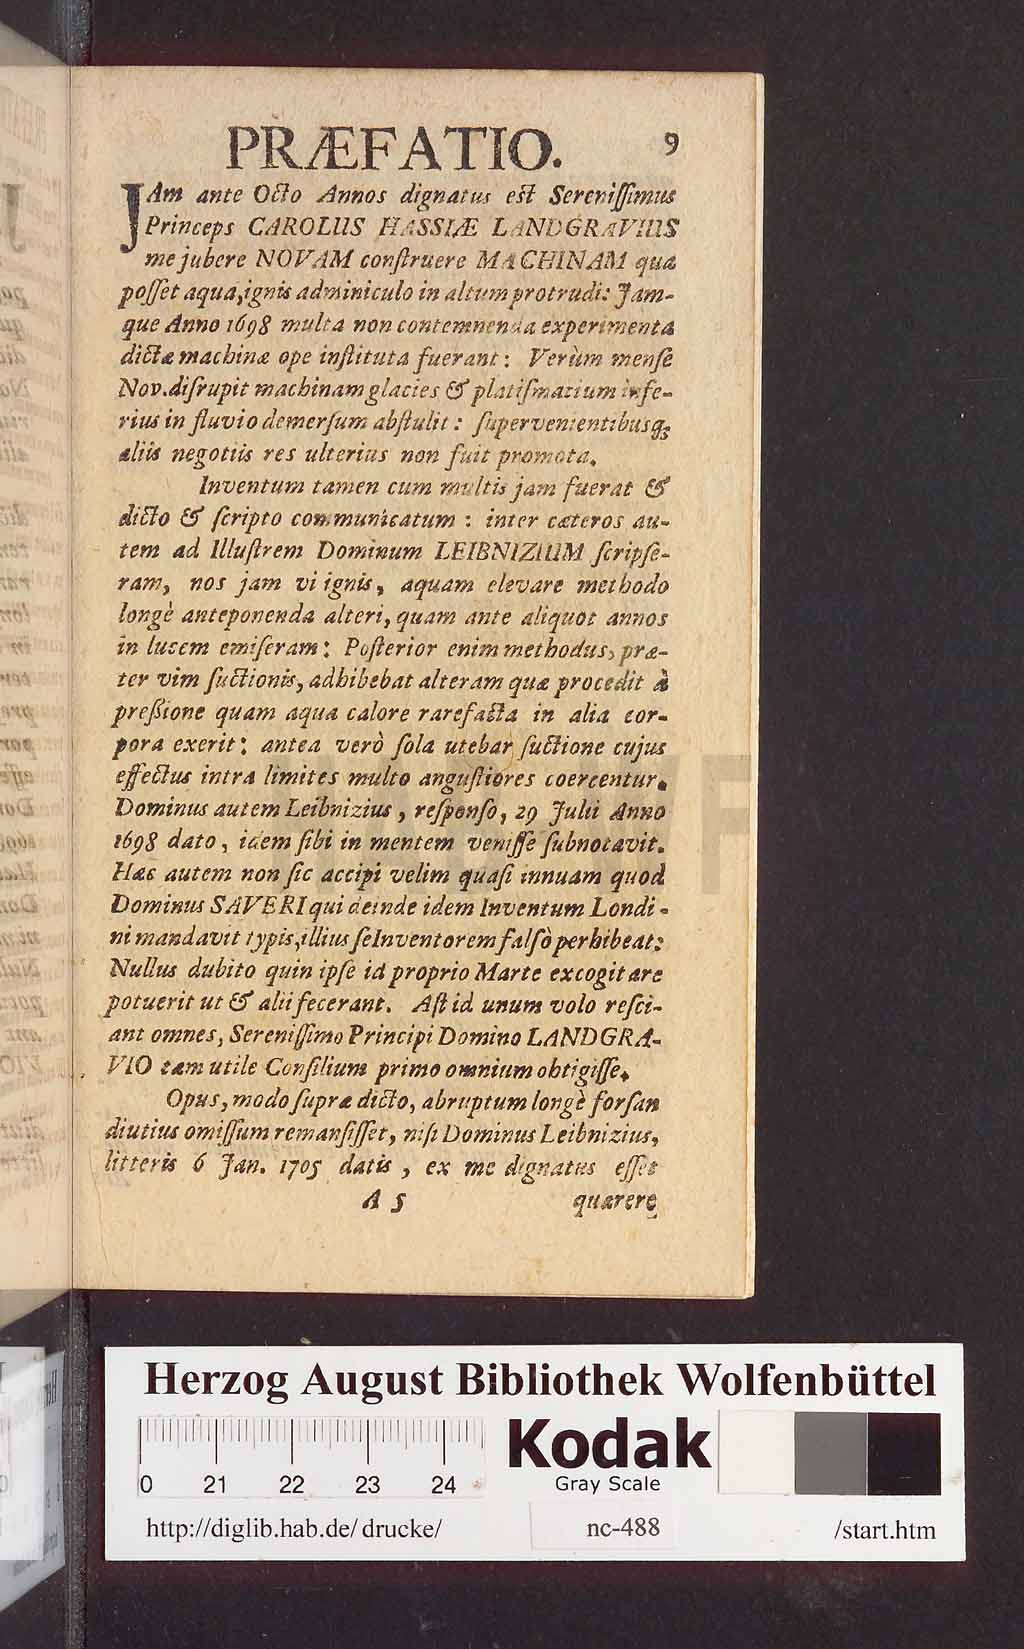 PRÆFATIO. 9
JAm ante Octo Annos dignatus est Sereniſſimus
Princeps CAROLUS HASSIÆ LANDGRAVIUS
me jubere NOVAM conſtruere MACHINAM qua
poſſet aqua, ignis adminiculo in altum protrudi: Jam-
que Anno 1698 multa non contemnenda experimenta
dictæ machinæ ope inſtituta fuerant: Verùm menſe
Nov. diſrupit machinam glacies & platiſmatium infe-
rius in fluvio demerſum abſtulit: ſupervenientibusq;
aliis negotiis res ulterius non fuit promota.
Inventum tamen cum multis jam fuerat &
dicto & ſcripto communicatum: inter cæteros au-
tem ad Illuſtrem Dominum LEIBNIZIUM ſcripſe-
ram, nos jam vi ignis, aquam elevare methodo
longè anteponenda alteri, quam ante aliquot annos
in lucem emiſeram: Poſterior enim methodus, præ-
ter vim ſuctionis, adhibebat alteram quæ procedit à
preßione quam aqua calore rarefacta in alia cor-
pora exerit: antea verò ſola utebar ſuctione cujus
effectus intra limites multo anguſtiores coercentur.
Dominus autem Leibnizius, reſponſo, 29 Julii Anno
1698 dato, idem ſibi in mentem veniſſe ſubnotavit.
Hæc autem non ſic accipi velim quaſi innuam quod
Dominus SAVERI qui deinde idem Inventum Londi-
ni mandavit typis, illius ſe Inventorem falſò perhibeat:
Nullus dubito quin ipſe id proprio Marte excogitare
potuerit ut & alii fecerant. Aſt id unum volo reſci-
ant omnes, Sereniſſimo Principi Domino LANDGRA-
VIO tam utile Conſilium primo omnium obtigiſſe.
Opus, modo ſupra dicto, abruptum longè forſan
diutius omiſſum remanſiſſet, niſi Dominus Leibnizius,
litteris 6 Jan. 1705 datis, ex me dignatus eſſet
A 5 quærere
Herzog August Bibliothek Wolfenbüttel
0 21 22 23 24
Kodak
Gray Scale
http://diglib.hab.de/drucke/ nc-488 /start.htm